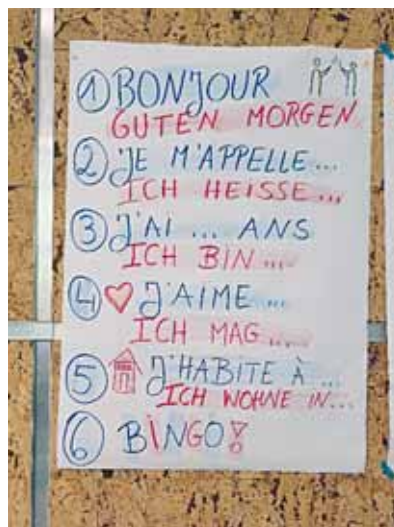 1 BONJOUR
GUTEN MORGEN
2 JE M'APPELLE...
ICH HEISSE...
3 J'AI ... ANS
ICH BIN ...
4 J'AIME ...
ICH MAG ....
5 J'HABITE À ...
ICH WOHNE IN...
6 BINGO!